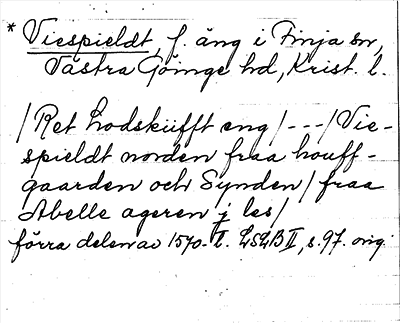 * Viespieldt, f. äng i Finja sn,
Västra Göinge hd, Krist. l.
/Ret Lodsküfft eng/---/Vie-
spieldt norden fraa houff-
gaarden och Synden/fraa
Abelle ageren j les/
förra delen av 1570-t. LSLB II, s. 97. orig.